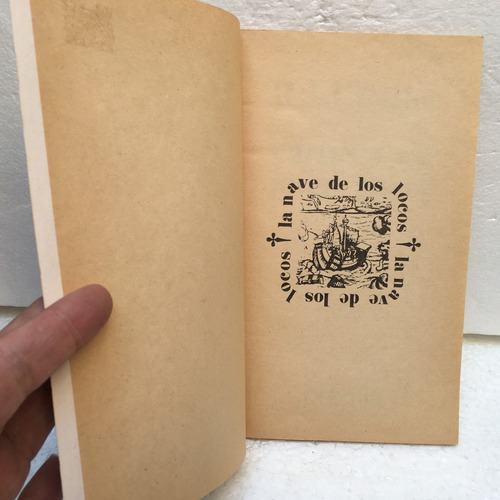 la nave de los locos †
la nave de los locos †